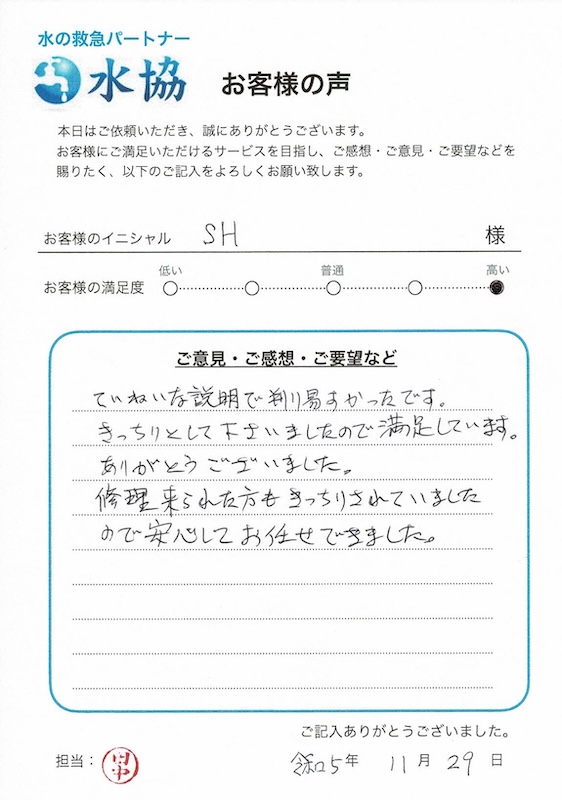 水の救急パートナー
水協 お客様の声
本日はご依頼いただき、誠にありがとうございます。
お客様にご満足いただけるサービスを目指し、ご感想・ご意見・ご要望などを
賜りたく、以下のご記入をよろしくお願い致します。
お客様のイニシャル SH 様
低い 普通 高い
お客様の満足度
ご意見・ご感想・ご要望など
ていねいな説明で判り易すかったです。
きっちりとして下さいましたので満足しています。
ありがとうございました。
修理来られた方もきっちりされていました
ので安心してお任せできました。
ご記入ありがとうございました。
担当: 田中 令和5年 11月 29日